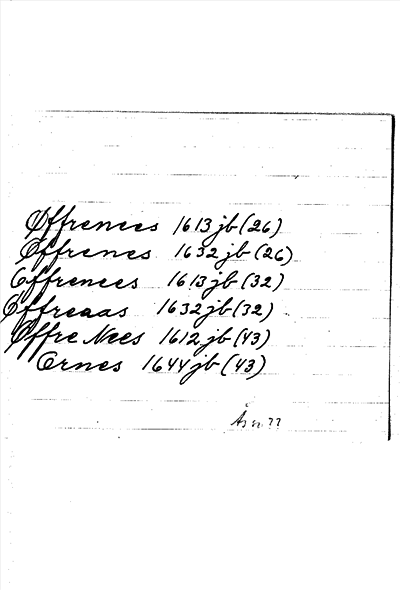 Øffrenees 1613 jb (26)
Øffrenes 1632 jb (26)
Offrenees 1613 jb (32)
Offreaas 1632 jb (32)
Øffre Nees 1612 jb (43)
Ernes 1644 jb (43)